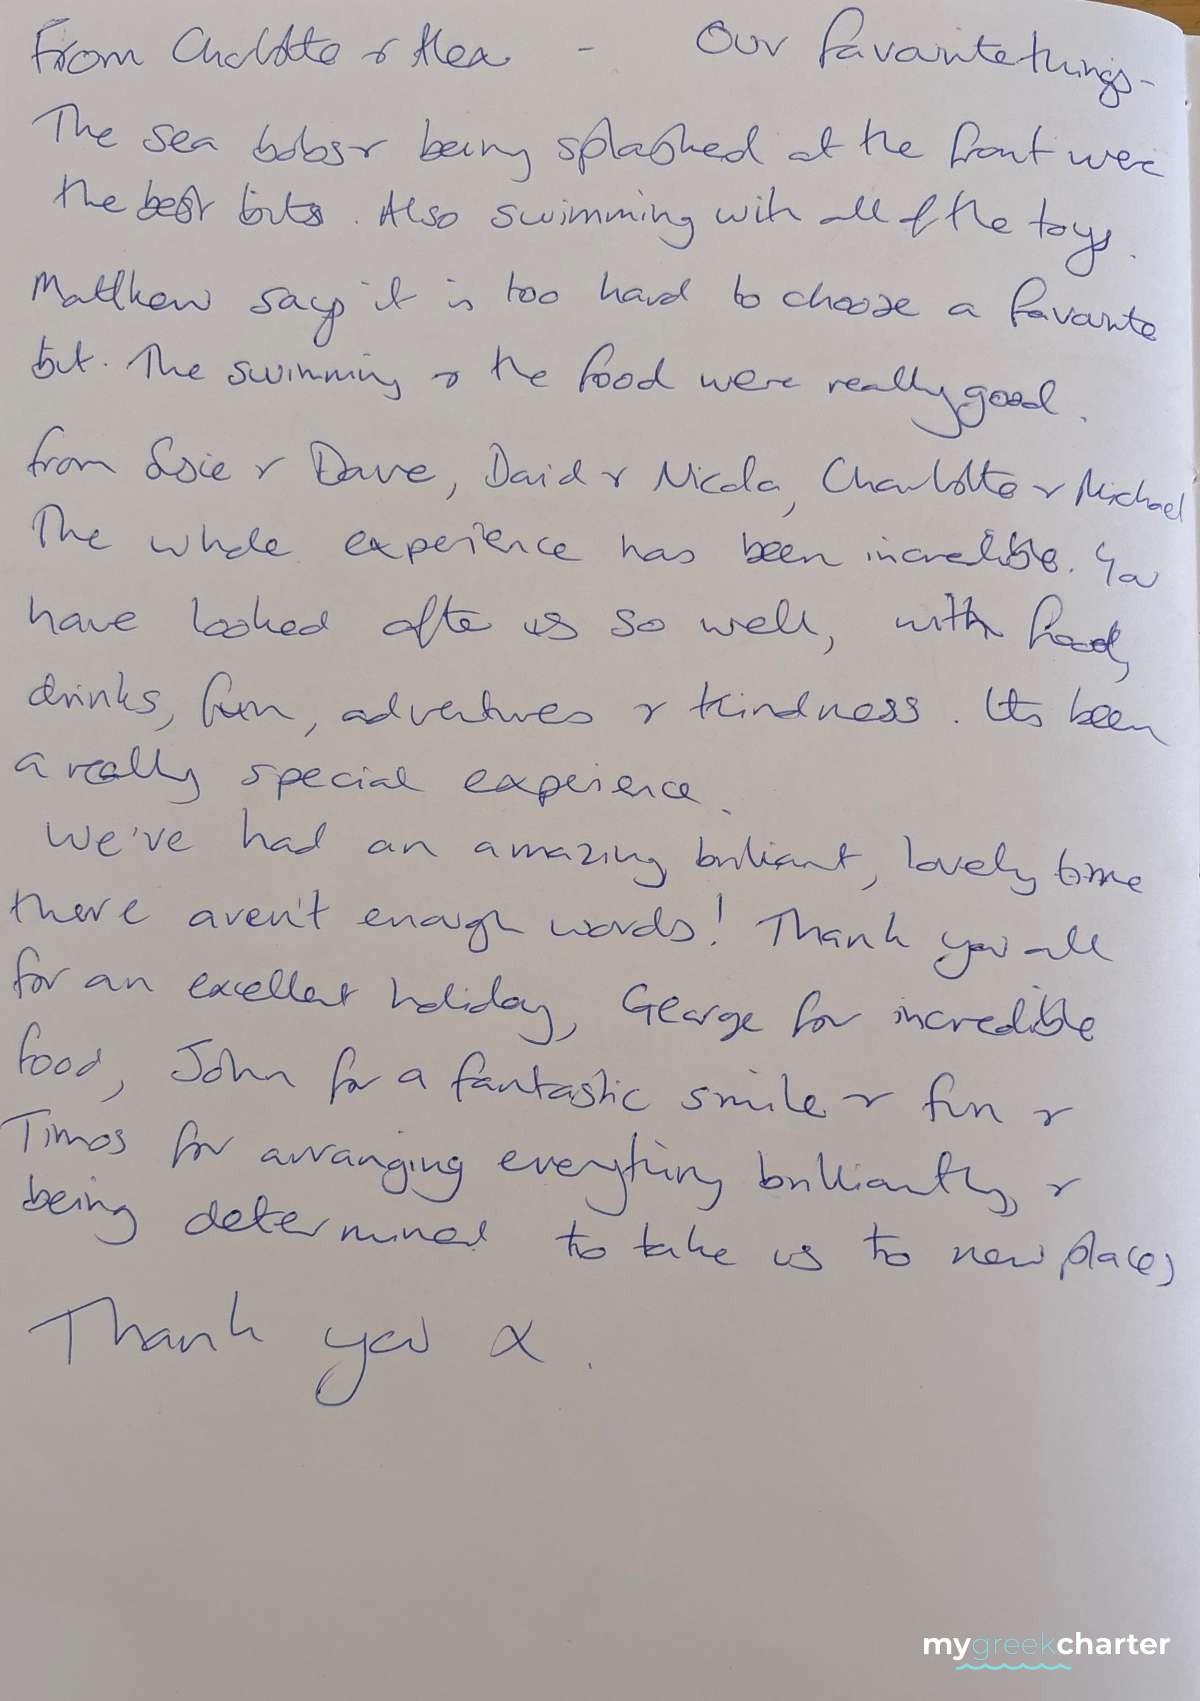 From Charlotte & Alex - Our favourite things -
The sea bobs & being splashed at the front were
the best bits. Also swimming with all of the toys.
Matthew says it is too hard to choose a favourite
bit. The swimming & the food were really good.
from Susie & Dave, David & Nicola, Charlotte & Michael
The whole experience has been incredible. You
have looked after us so well, with food,
drinks, fun, adventures & kindness. Its been
a really special experience.
We've had an amazing brilliant, lovely time
there aren't enough words! Thank you all
for an excellent holiday, George for incredible
food, John for a fantastic smile & fun &
Timos for arranging everything brilliantly, &
being determined to take us to new places
Thank you x.
mygreekcharter